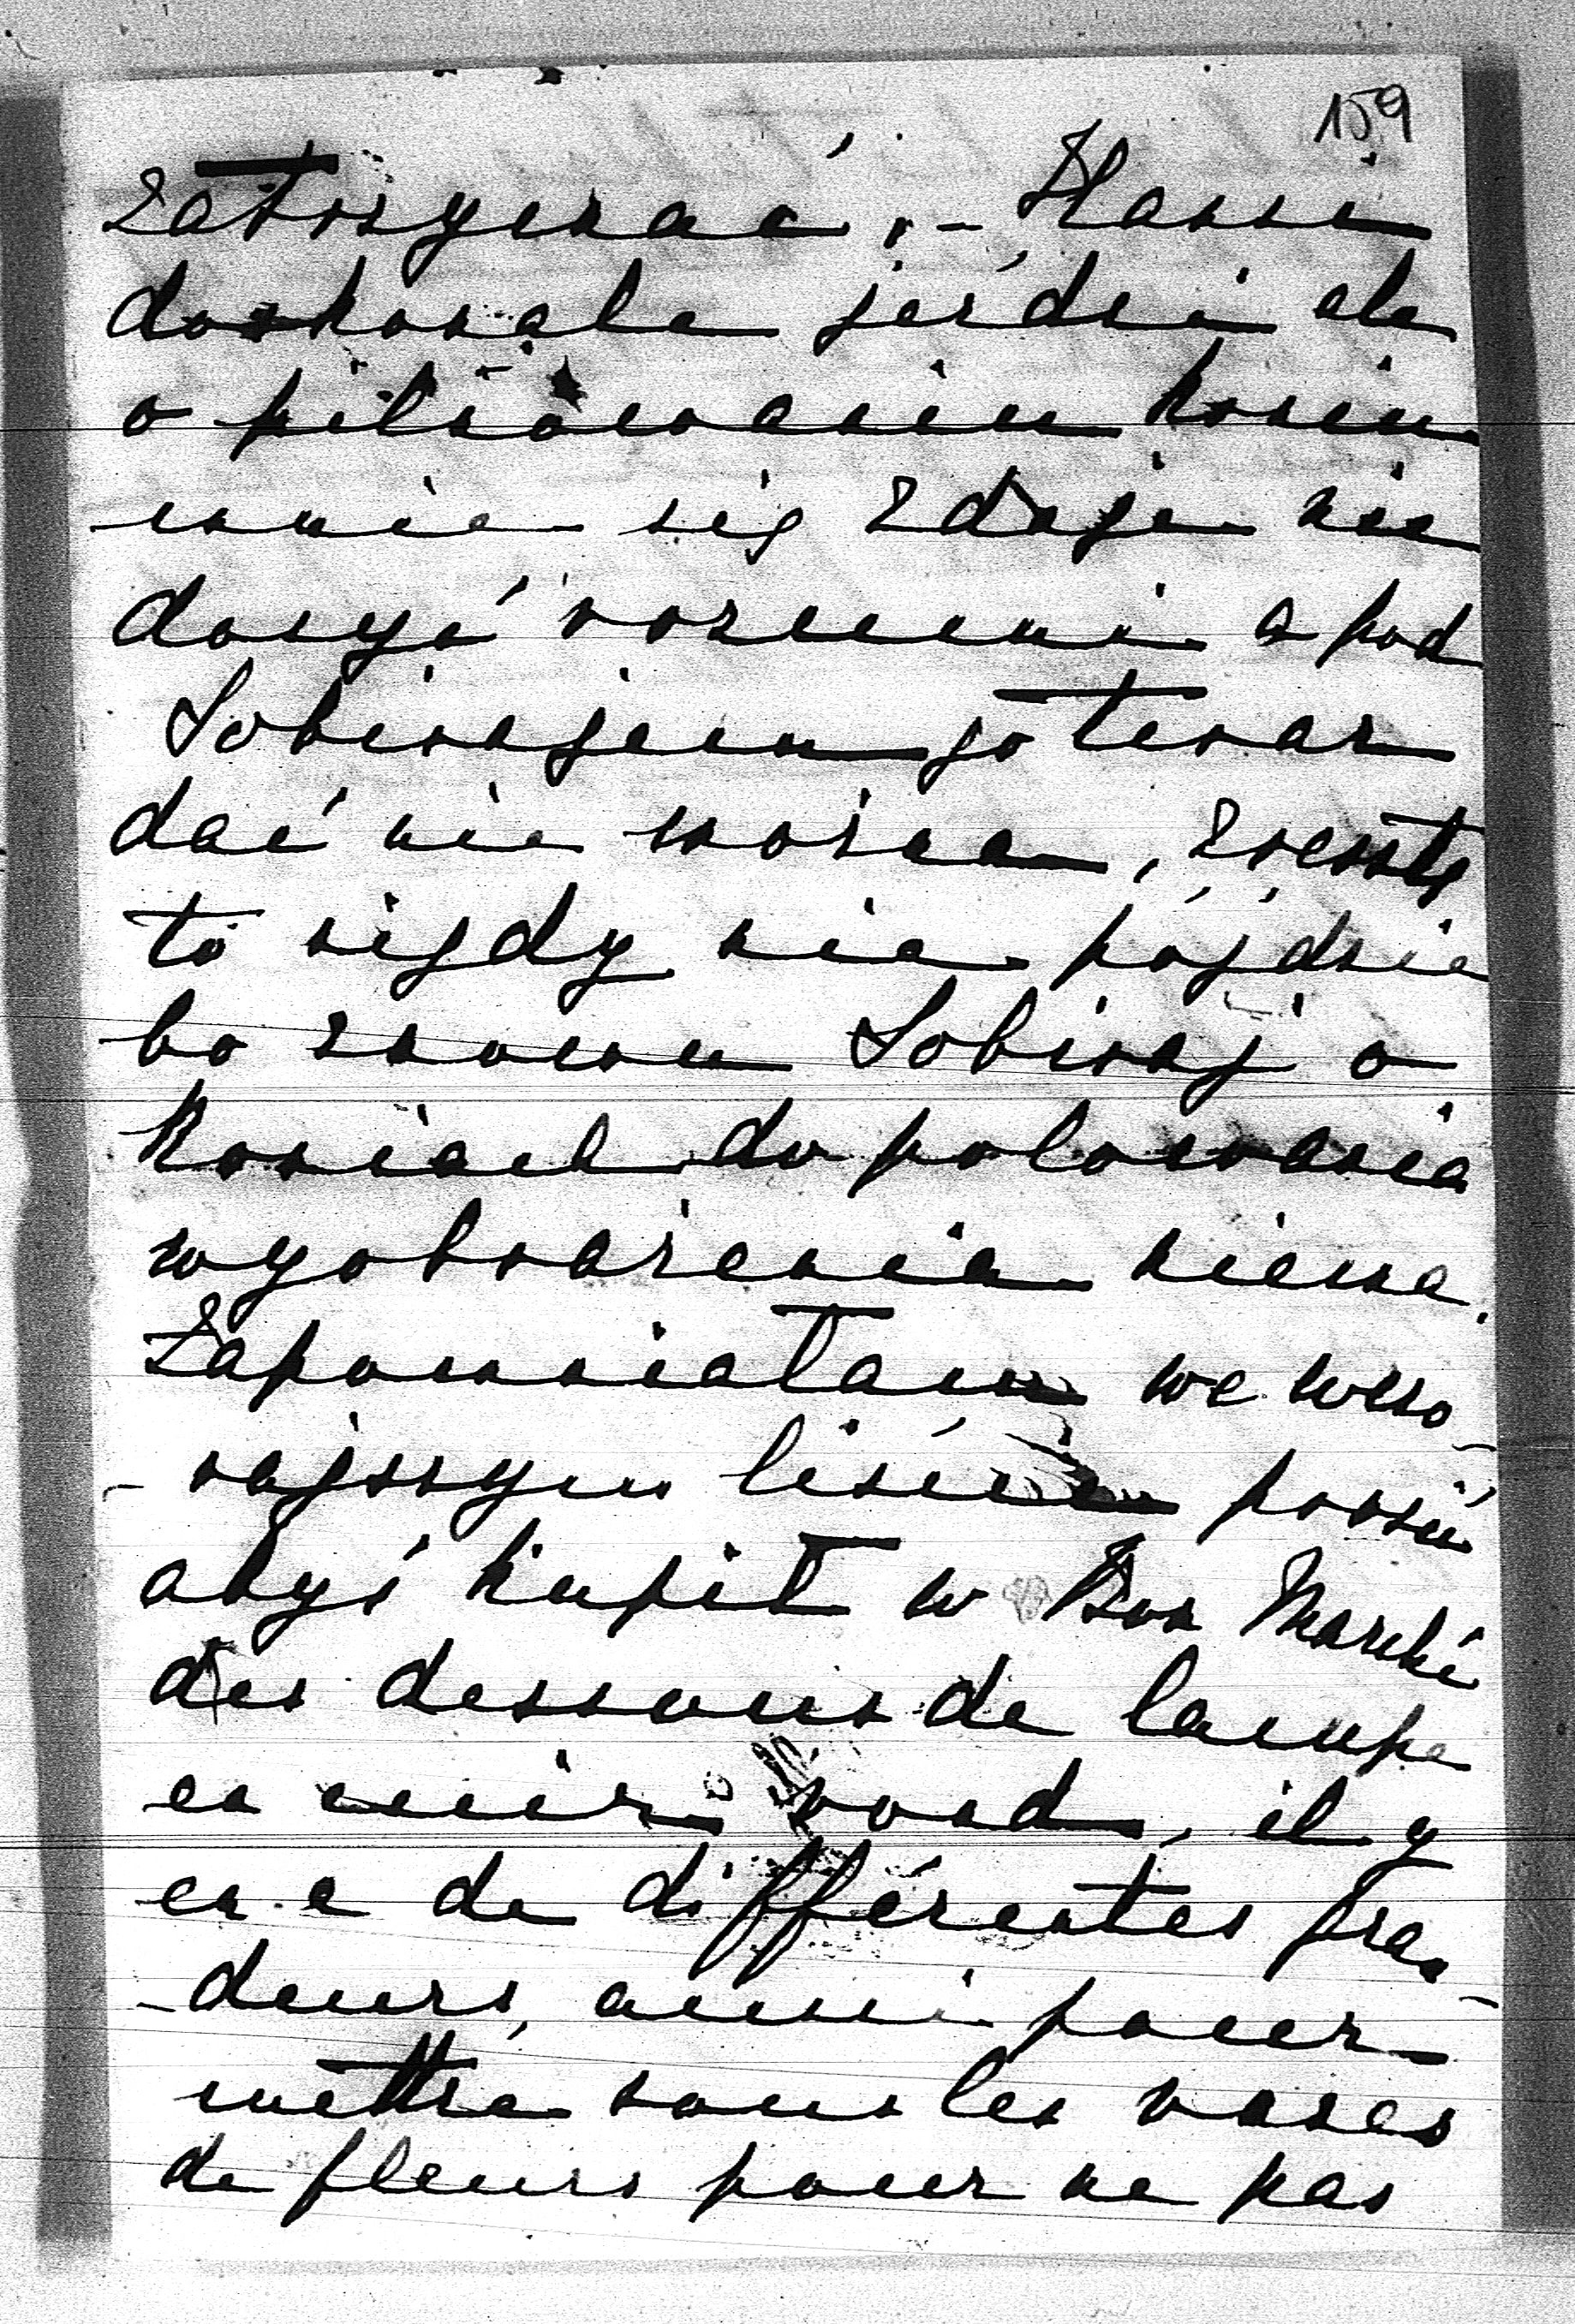 159
Zatrzymać. - Hassi
doskonale jeździ ale
o pilnowaniu koniu
mnie się zdaje nie
dosyć rozumi a pod
Sobirajem go teraz
dać nie można, zresztą
to nigdy nie pójdzie
bo znowu Sobiraj o
koniach do polowania
wyobrażenia niema.
Zapomniałam we wczo-
-rajszym liście prosić
abyś kupił w Bon Marché
des dessous de lampe
en cuir rond, il y
en a de différentes gran-
-deurs, aussi pour
mettre sous les vases
de fleurs pour ne pas